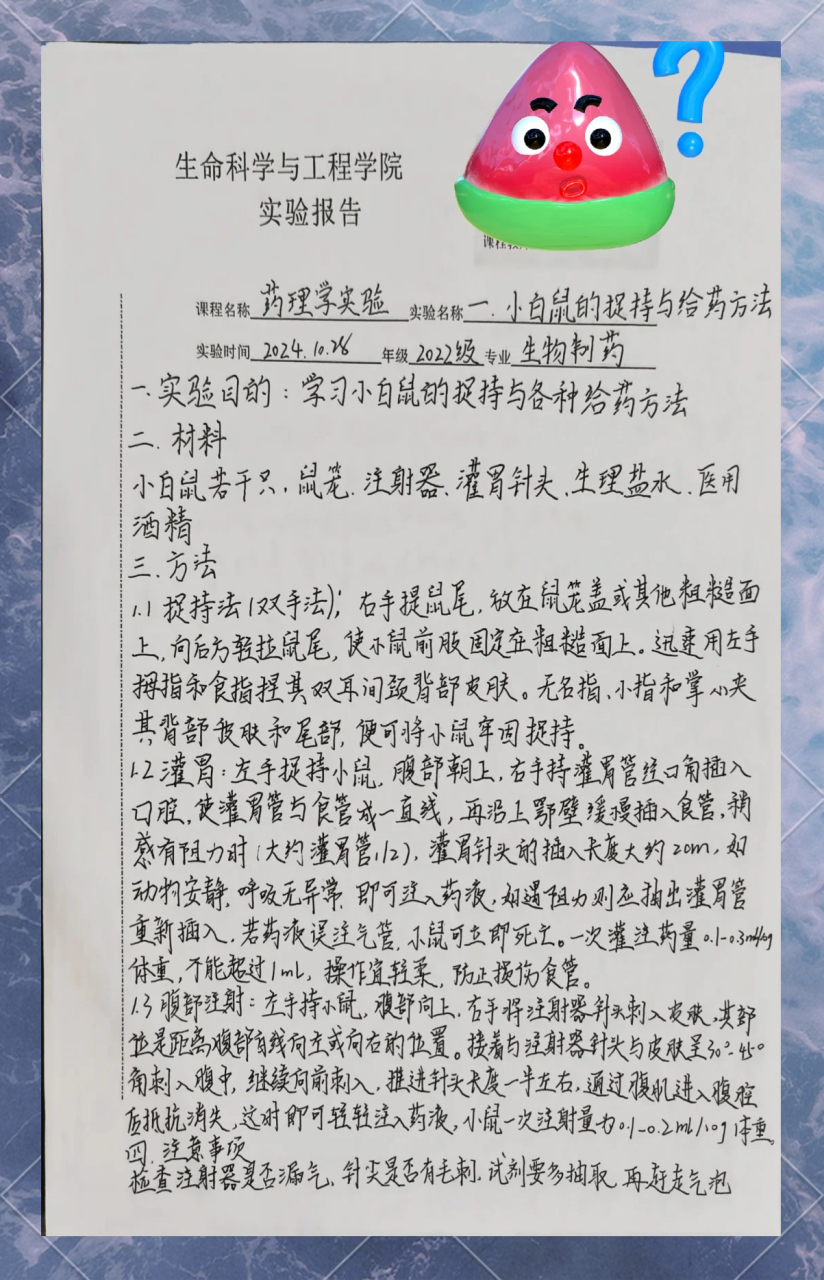 生命科学与工程学院
实验报告
课程名称 药理学实验 实验名称 一.小白鼠的捉持与给药方法
实验时间 2024.10.28 年级 2022级 专业 生物制药
一.实验目的：学习小白鼠的捉持与各种给药方法
二.材料
小白鼠若干只、鼠笼、注射器、灌胃针头、生理盐水、医用
酒精
三.方法
1.1 捉持法(双手法)；右手提鼠尾，放在鼠笼盖或其他粗糙面
上，向后方轻拉鼠尾，使小鼠前肢固定在粗糙面上。迅速用左手
拇指和食指捏其双耳间颈背部皮肤。无名指、小指和掌心夹
其背部皮肤和尾部，便可将小鼠牢固捉持。
1.2 灌胃：左手捉持小鼠，腹部朝上，右手持灌胃管经口角插入
口腔，使灌胃管与食管成一直线，再沿上鄂壁缓慢插入食管，稍
感有阻力时(大约灌胃管1/2)，灌胃针头的插入长度大约2cm，如
动物安静，呼吸无异常，即可注入药液，如遇阻力则应抽出灌胃管
重新插入，若药液误注气管，小鼠可立即死亡。一次灌注药量0.1-0.3ml/10g
体重，不能超过1mL，操作宜轻柔，防止损伤食管。
1.3 腹部注射：左手持小鼠，腹部向上，右手将注射器针头刺入皮肤，其部
位是距离腹部白线向左或向右的位置。接着与注射器针头与皮肤呈30°-45°
角刺入腹中，继续向前刺入，推进针头长度一半左右，通过腹肌进入腹腔
后抵抗消失，这时即可轻轻注入药液，小鼠一次注射量为0.1-0.2mL/10g体重。
四.注意事项
检查注射器是否漏气，针尖是否有毛刺，试剂要多抽取，再赶走气泡